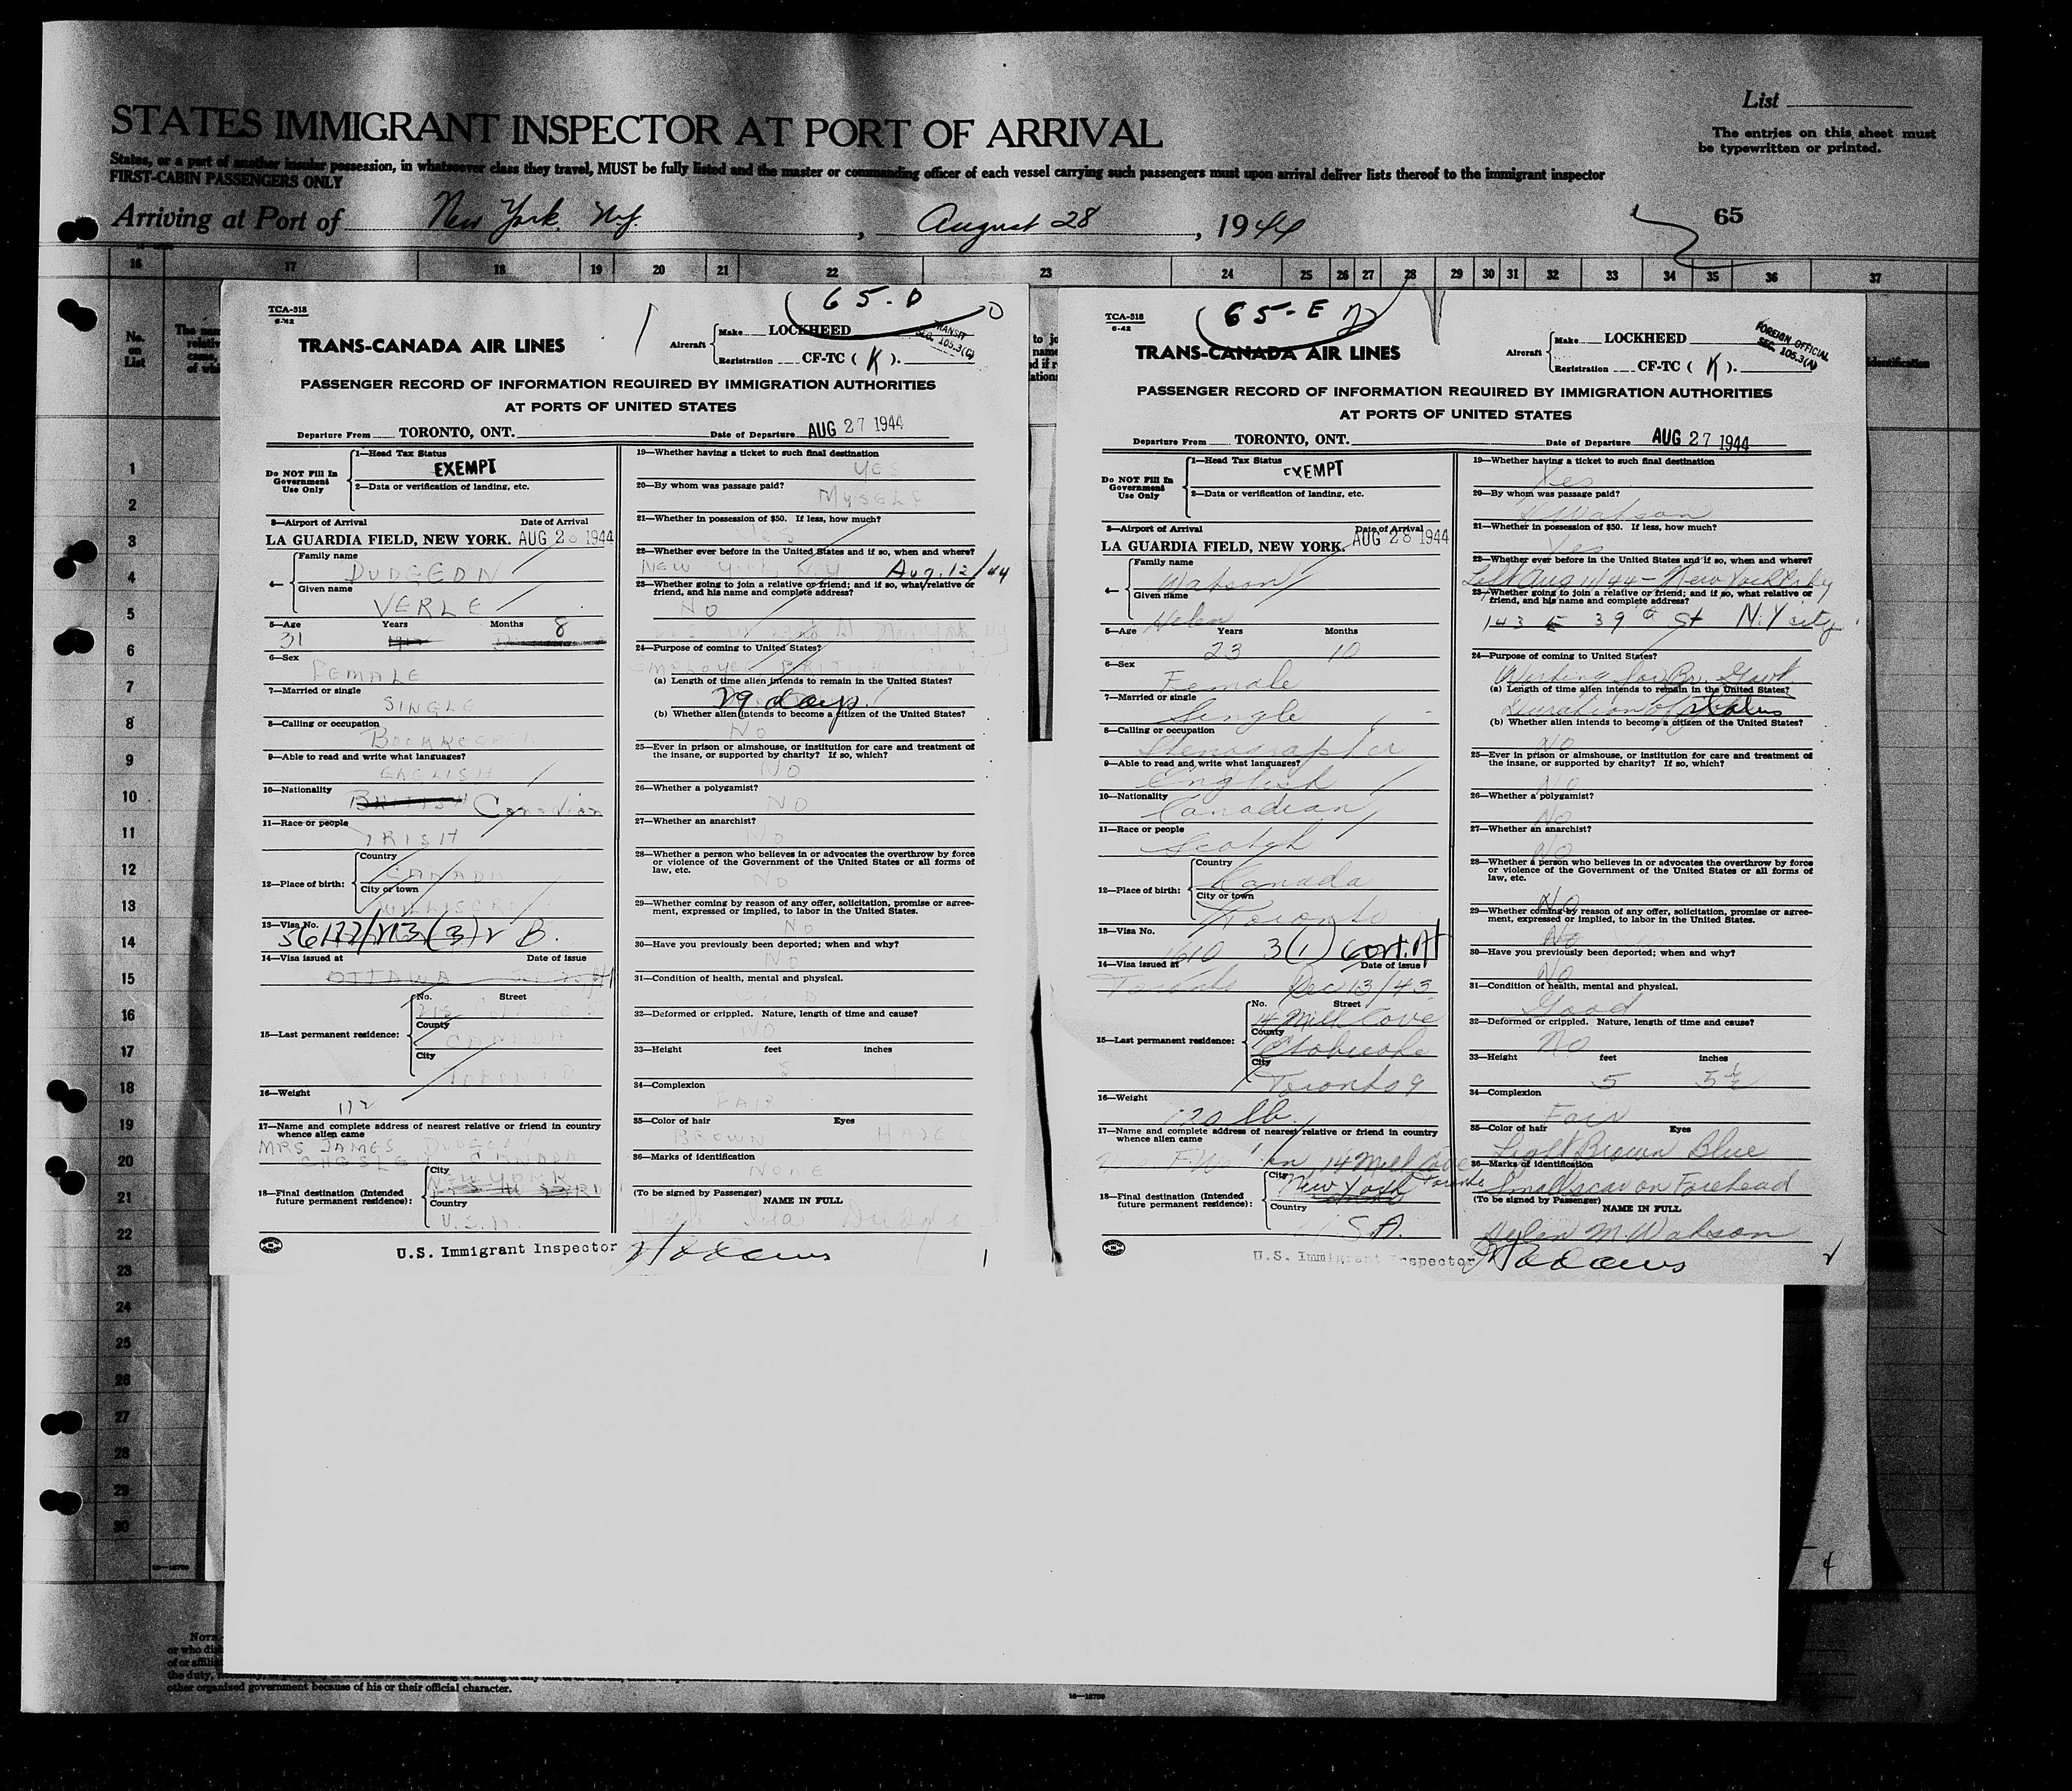 List
STATES IMMIGRANT INSPECTOR AT PORT OF ARRIVAL
The entries on this sheet must
be typewritten or printed.
States, or a port of another insular possession, in whatsoever class they travel, MUST be fully listed and the master or commanding officer of each vessel carrying such passengers must upon arrival deliver lists thereof to the immigrant inspector
FIRST-CABIN PASSENGERS ONLY
Arriving at Port of New York, N.Y. , August 28 , 1944
65
16 17 18 19 20 21 22 23 24 25 26 27 28 29 30 31 32 33 34 35 36 37
No.
on
List
1
2
3
4
5
6
7
8
9
10
11
12
13
14
15
16
17
18
19
20
21
22
23
24
25
26
27
28
29
30
65-D
TCA-518
6-42
TRANS-CANADA AIR LINES
Aircraft
Make LOCKHEED
Registration CF-TC ( K ).
TRANSIT
SEC. 105.3(C)
PASSENGER RECORD OF INFORMATION REQUIRED BY IMMIGRATION AUTHORITIES
AT PORTS OF UNITED STATES
Departure From TORONTO, ONT. Date of Departure AUG 27 1944
Do NOT Fill In
Government
Use Only
1—Head Tax Status
EXEMPT
2—Data or verification of landing, etc.
3—Airport of Arrival Date of Arrival
LA GUARDIA FIELD, NEW YORK. AUG 28 1944
4—
Family name
DUDGEON
Given name
VERLE
5—Age Years Months
31 8
6—Sex
FEMALE
7—Married or single
SINGLE
8—Calling or occupation
BOOKKEEPER
9—Able to read and write what languages?
ENGLISH
10—Nationality BRITISH Canadian
11—Race or people
IRISH
12—Place of birth:
Country
CANADA
City or town
13—Visa No.
14—Visa issued at Date of issue
OTTAWA
15—Last permanent residence:
No. Street
County
CANADA
City
TORONTO
16—Weight
112
17—Name and complete address of nearest relative or friend in country
whence alien came
MRS JAMES DUDGEON
CHESLEY CANADA
18—Final destination (Intended
future permanent residence):
City
NEW YORK
Country
U.S.A.
U.S. Immigrant Inspector
19—Whether having a ticket to such final destination
YES
20—By whom was passage paid?
MYSELF
21—Whether in possession of $50. If less, how much?
YES
22—Whether ever before in the United States and if so, when and where?
NEW YORK, N.Y. Aug. 12/44
23—Whether going to join a relative or friend; and if so, what relative or
friend, and his name and complete address?
NO
24—Purpose of coming to United States?
EMPLOYEE BRITISH
(a) Length of time alien intends to remain in the United States?
29 days.
(b) Whether alien intends to become a citizen of the United States?
NO
25—Ever in prison or almshouse, or institution for care and treatment of
the insane, or supported by charity? If so, which?
NO
26—Whether a polygamist?
NO
27—Whether an anarchist?
NO
28—Whether a person who believes in or advocates the overthrow by force
or violence of the Government of the United States or all forms of
law, etc.
NO
29—Whether coming by reason of any offer, solicitation, promise or agree-
ment, expressed or implied, to labor in the United States.
NO
30—Have you previously been deported; when and why?
NO
31—Condition of health, mental and physical.
32—Deformed or crippled. Nature, length of time and cause?
NO
33—Height feet inches
5
34—Complexion
FAIR
35—Color of hair Eyes
BROWN HAZEL
36—Marks of identification
NONE
(To be signed by Passenger)
NAME IN FULL
1
65-E
TCA-518
6-42
TRANS-CANADA AIR LINES
Aircraft
Make LOCKHEED
Registration CF-TC ( K ).
FOREIGN OFFICIAL
SEC. 105.3(A)
PASSENGER RECORD OF INFORMATION REQUIRED BY IMMIGRATION AUTHORITIES
AT PORTS OF UNITED STATES
Departure From TORONTO, ONT. Date of Departure AUG 27 1944
Do NOT Fill In
Government
Use Only
1—Head Tax Status
EXEMPT
2—Data or verification of landing, etc.
3—Airport of Arrival Date of Arrival
LA GUARDIA FIELD, NEW YORK. AUG 28 1944
4—
Family name
Watson
Given name
Helen
5—Age Years Months
23 10
6—Sex
Female
7—Married or single
Single
8—Calling or occupation
Stenographer
9—Able to read and write what languages?
English
10—Nationality
Canadian
11—Race or people
Scotch
12—Place of birth:
Country
Canada
City or town
Toronto
13—Visa No.
1610 3(1)
14—Visa issued at Date of issue
Toronto Dec 13/43
15—Last permanent residence:
No. Street
14 Mill Cove
County
Etobicoke
City
Toronto 9
16—Weight
120 lb.
17—Name and complete address of nearest relative or friend in country
whence alien came
14 Mill Cove
Toronto
18—Final destination (Intended
future permanent residence):
City
New York
Country
U.S.A.
U.S. Immigrant Inspector
19—Whether having a ticket to such final destination
Yes
20—By whom was passage paid?
H Watson
21—Whether in possession of $50. If less, how much?
Yes
22—Whether ever before in the United States and if so, when and where?
Left Aug 11/44 - New York City
23—Whether going to join a relative or friend; and if so, what relative or
friend, and his name and complete address?
143 E 39th St N.Y city
24—Purpose of coming to United States?
Working for Br. Govt.
(a) Length of time alien intends to remain in the United States?
Duration of status
(b) Whether alien intends to become a citizen of the United States?
No
25—Ever in prison or almshouse, or institution for care and treatment of
the insane, or supported by charity? If so, which?
No
26—Whether a polygamist?
No
27—Whether an anarchist?
No
28—Whether a person who believes in or advocates the overthrow by force
or violence of the Government of the United States or all forms of
law, etc.
No
29—Whether coming by reason of any offer, solicitation, promise or agree-
ment, expressed or implied, to labor in the United States.
No
30—Have you previously been deported; when and why?
No
31—Condition of health, mental and physical.
Good
32—Deformed or crippled. Nature, length of time and cause?
No
33—Height feet inches
5 5½
34—Complexion
Fair
35—Color of hair Eyes
Light Brown Blue
36—Marks of identification
Small scar on Forehead
(To be signed by Passenger)
NAME IN FULL
Helen M. Watson
other organized government because of his or their official character.